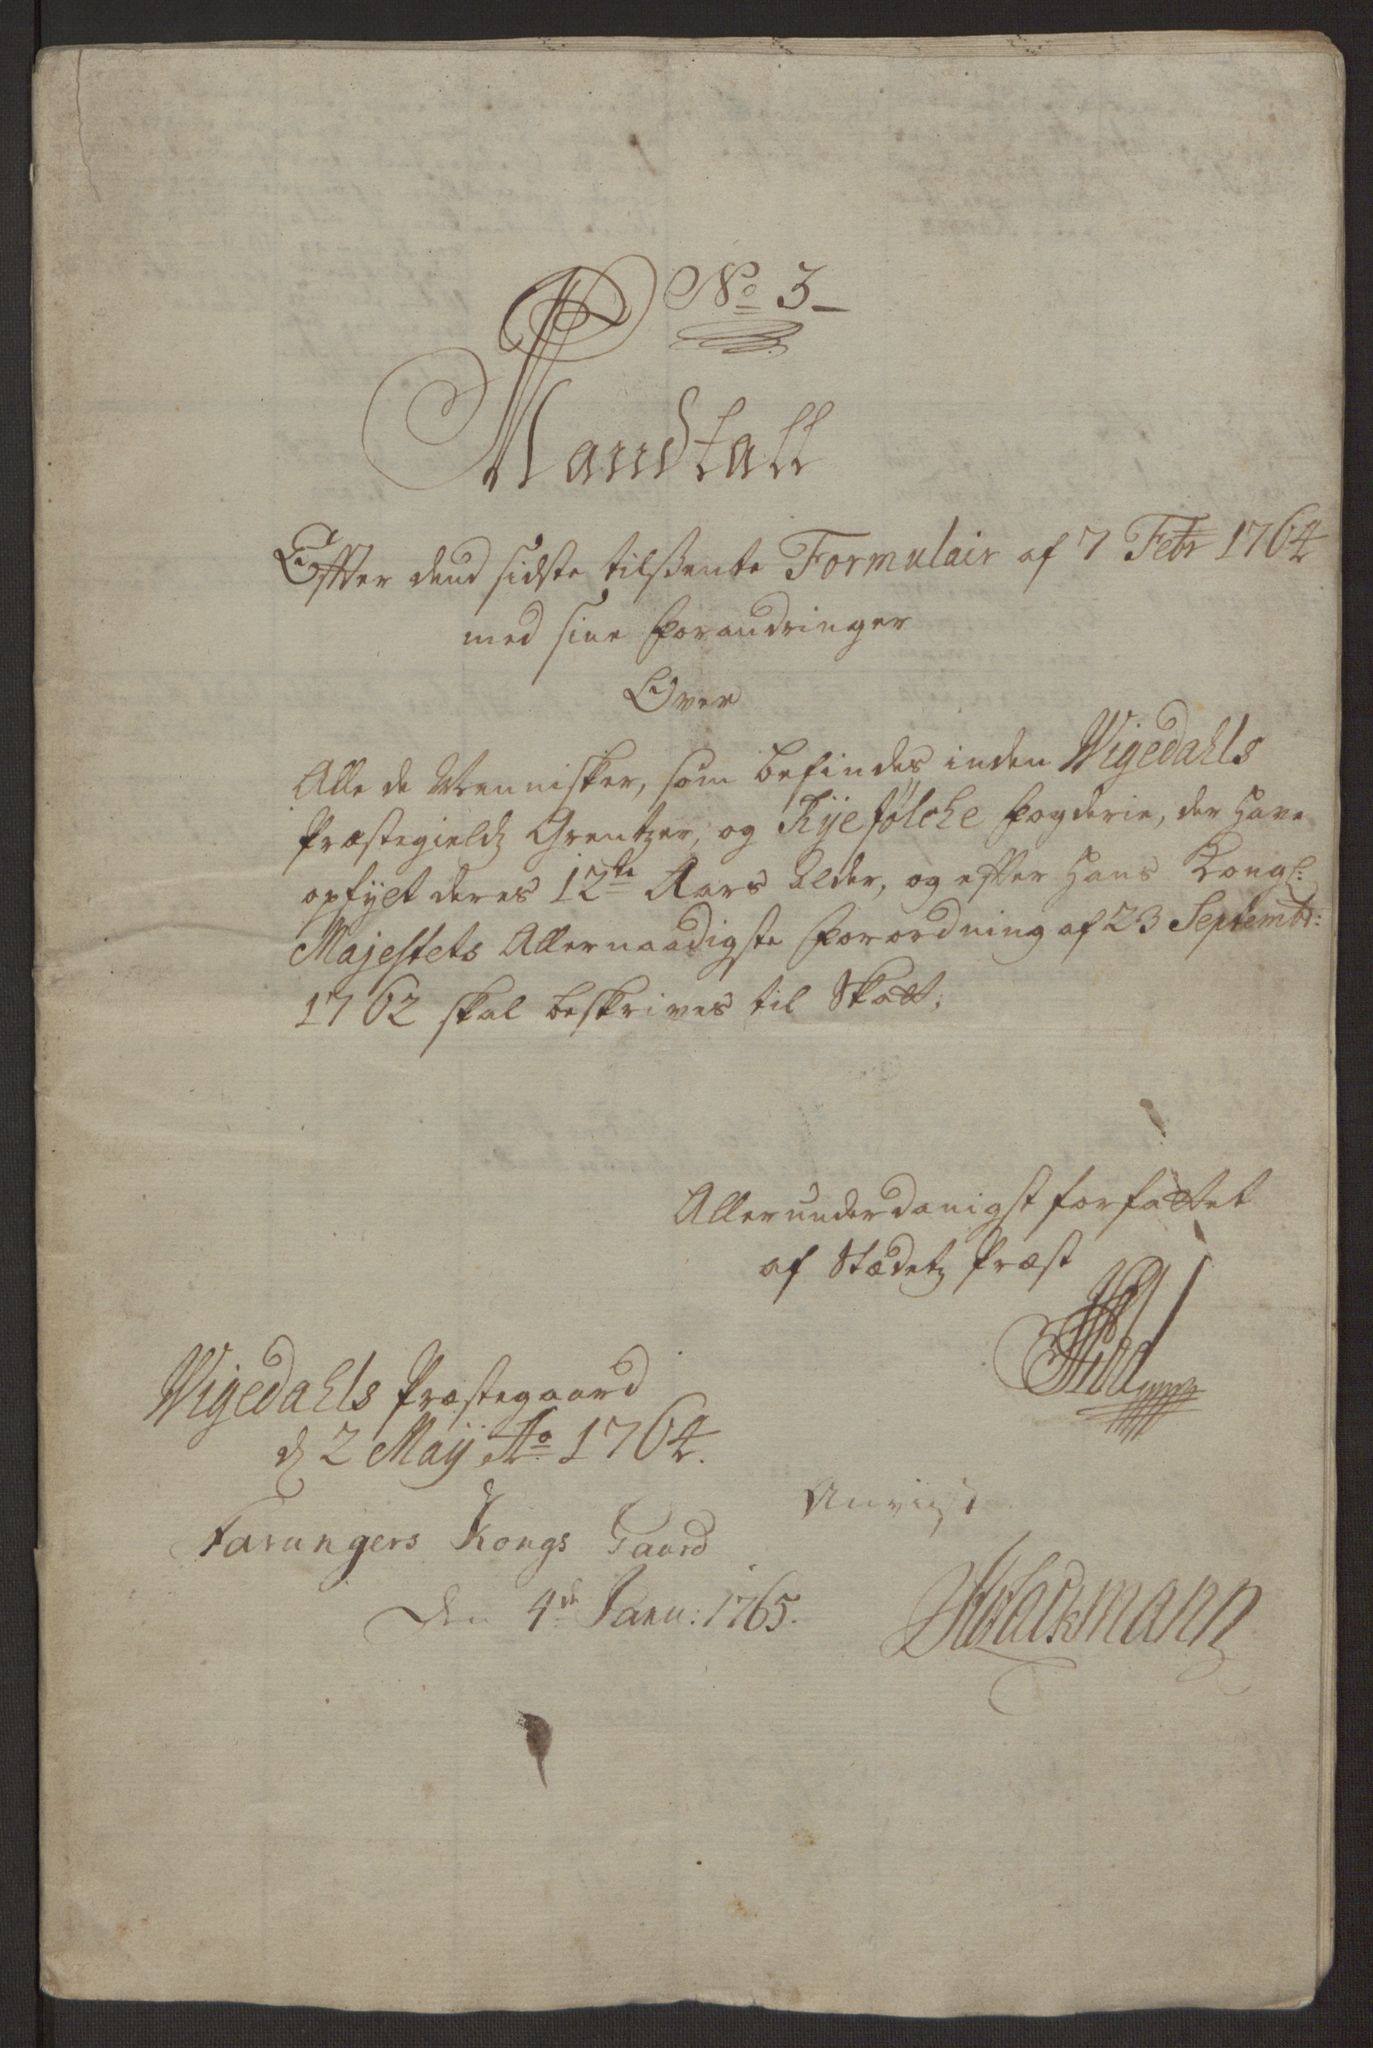 No 3
Mandtall
Efter dend sidste tilsente Formulair af 7 Febr 1764
med sine forandringer
Over
Alle de Mennisker, som befindes inden Wigedahls
Præstegields Grentzer, og Ryefÿlche fogderie, der have
opfÿlt deres 12te Aars Alder, og efter Hans Kongl:
Majestets Allernaadigste forordning af 23 Septembr:
1762 skal beskrives til Skatt.
Allerunderdanigst forfattet
af Stædets Præst
Wigedahls Præstegaard
d 2 Maÿ Ao 1764.
Anviist
Kongs Gaard
Den 4de Janu: 1765.